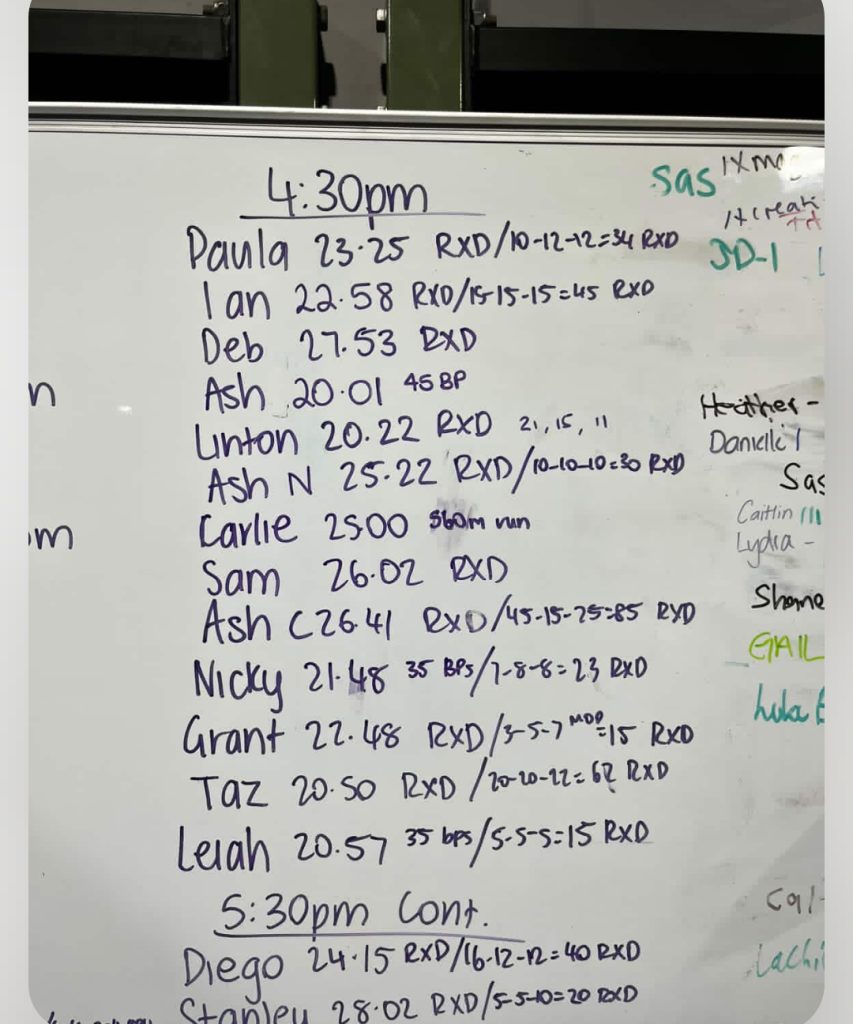 4:30pm
Paula 23.25 RXD/10-12-12=34 RXD
Ian 22.58 RXD/15-15-15=45 RXD
Deb 27.53 RXD
Ash 20.01 45 BP
Linton 20.22 RXD 21, 15, 11
Ash N 25.22 RXD/10-10-10=30 RXD
Carlie 2500 560m run
Sam 26.02 RXD
Ash C 26.41 RXD/45-15-25=85 RXD
Nicky 21.48 35 BPs/7-8-8=23 RXD
Grant 22.48 RXD/3-5-7 =15 RXD
Taz 20.50 RXD/20-20-22=62 RXD
Leiah 20.57 35 bps/5-5-5=15 RXD
5:30pm Cont.
Diego 24.15 RXD/16-12-12=40 RXD
Stanley 28.02 RXD/5-5-10=20 RXD
Sas
JD-1
Heather -
Danielle 1
Sas
Caitlin III
Lydia -
Shane
GAIL
Luka
Cal-